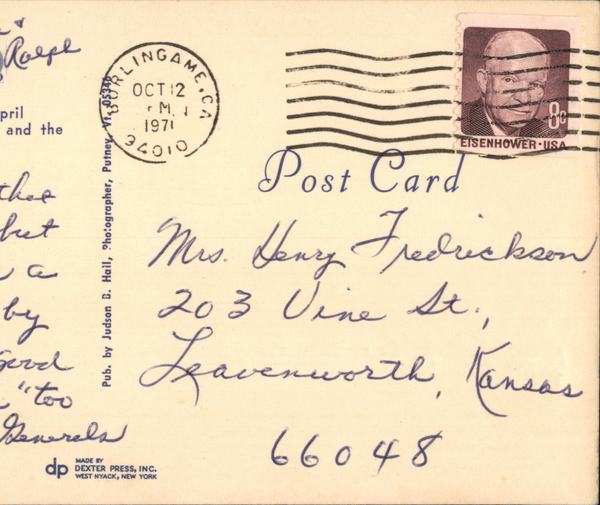 &
Ralph
pril
and the
thee
but
a
by
good
"too
Generals
Pub. by Judson D. Hall, Photographer, Putney, Vt. 05346
BURLINGAME, CA
OCT 12
PM
1971
94010
8c
EISENHOWER·USA
Post Card
Mrs. Henry Fredrickson
203 Vine St.,
Leavenworth, Kansas
66048
dp MADE BY
DEXTER PRESS, INC.
WEST NYACK, NEW YORK